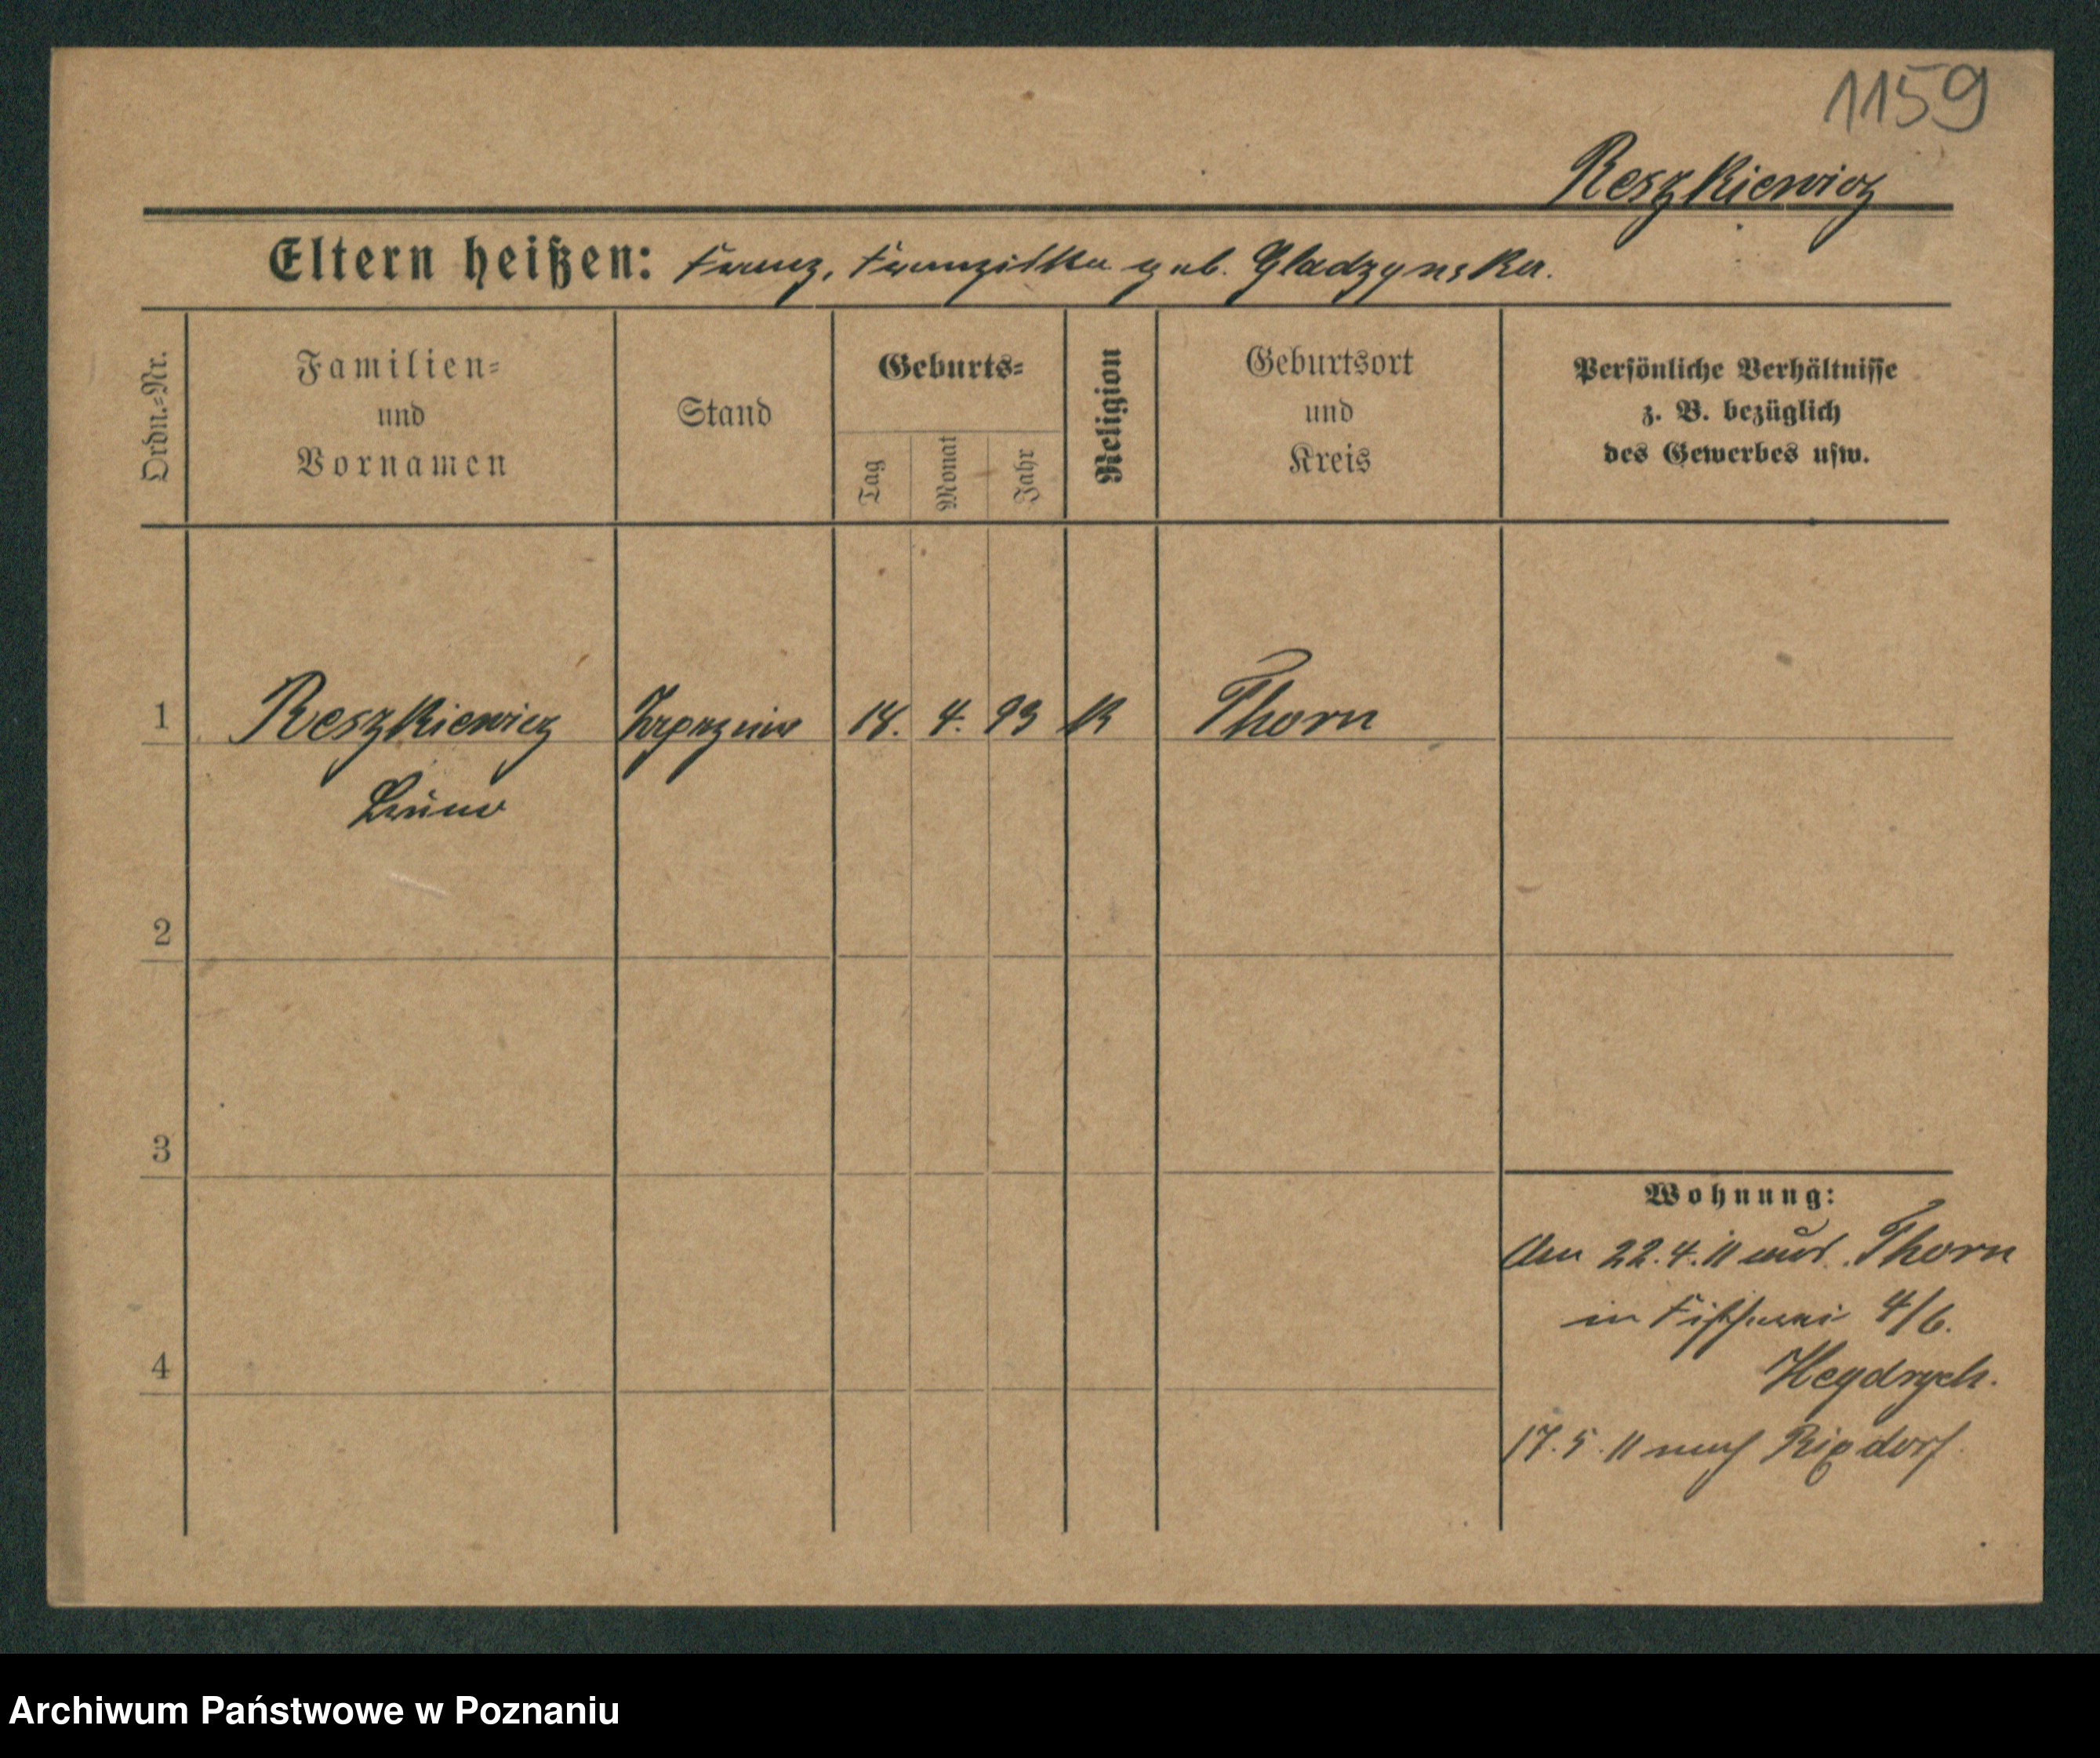 1159
Reszkiewicz
Eltern heißen: Franz, Franziska geb. Gladzynska.
Ordn.-Nr.
Familien-
und
Vornamen
Stand
Geburts-
Tag
Monat
Jahr
Religion
Geburtsort
und
Kreis
Persönliche Verhältnisse
z. B. bezüglich
des Gewerbes usw.
1
Reszkiewicz
18. 4. 93
K
Thorn
Bruno
2
3
4
Wohnung:
Am 22.4.11 aus Thorn
in Fischerei 4/6.
Heydrych.
17.5.11 nach Rixdorf.
Archiwum Państwowe w Poznaniu